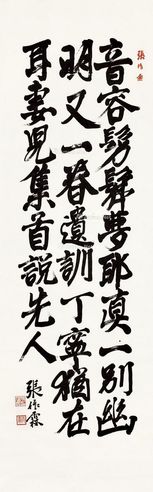 音容髣髴夢耶真一別幽
明又一春遺訓丁寧猶在
耳妻兒集首說先人
張作霖